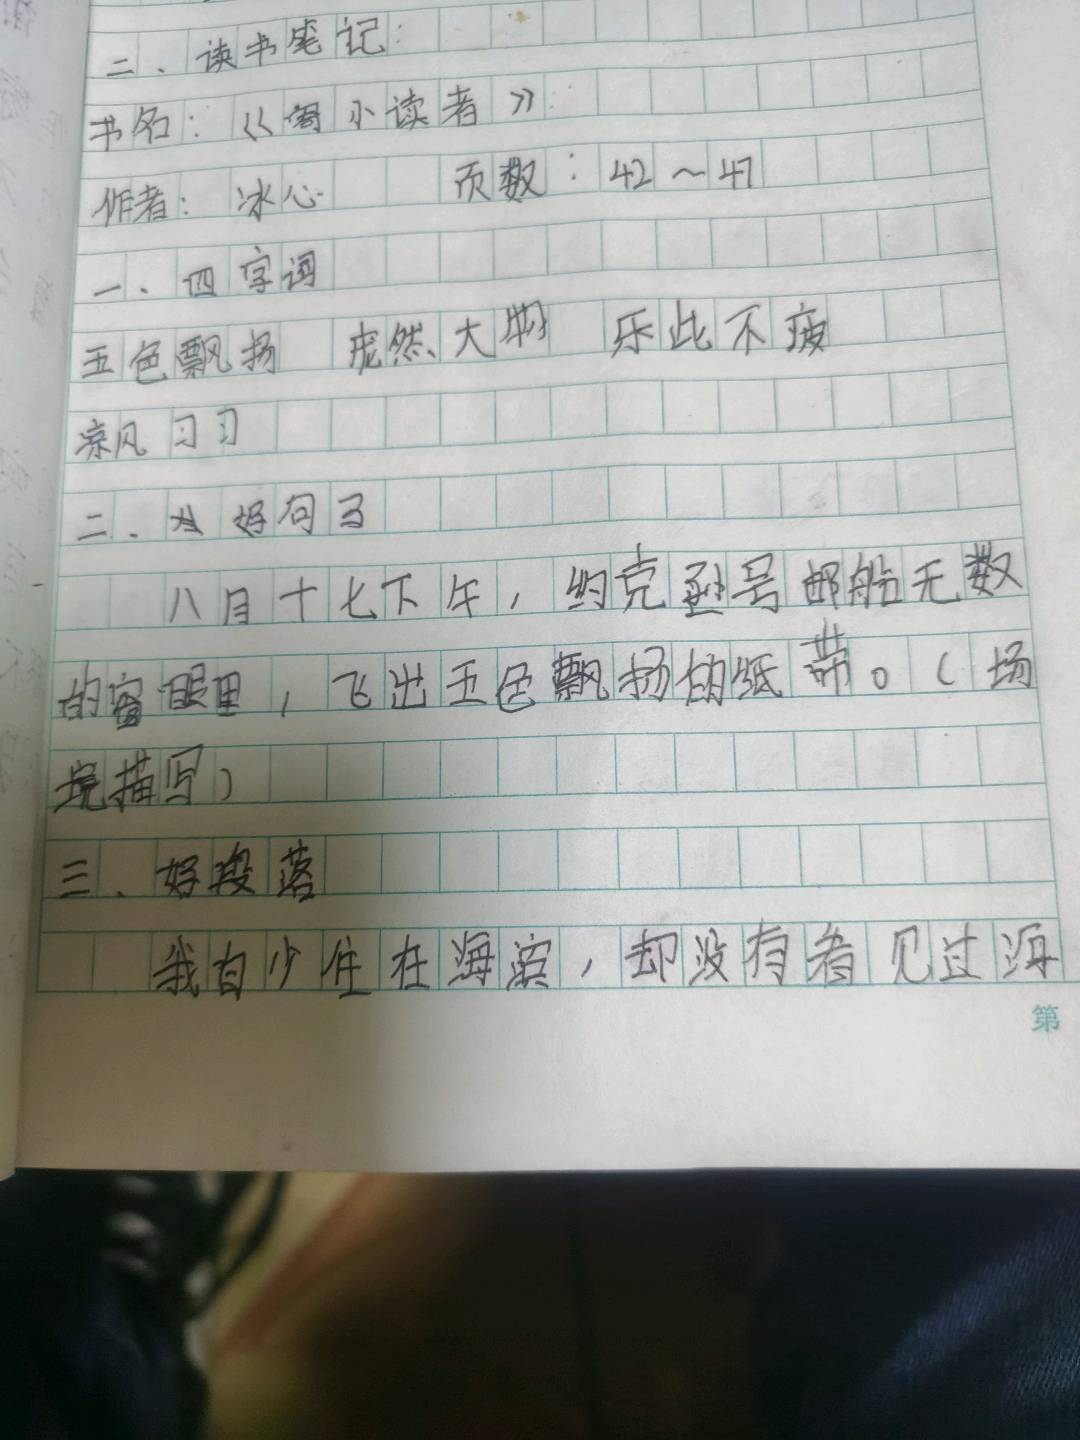 二、读书笔记：
书名：《寄小读者》
作者：冰心 页数：42～47
一、四字词
五色飘扬 庞然大物 乐此不疲
凉风习习
二、好句子
八月十七下午，约克逊号邮船无数
的窗眼里，飞出五色飘扬的纸带。（场
境描写）
三、好段落
我自少住在海滨，却没有看见过海
第